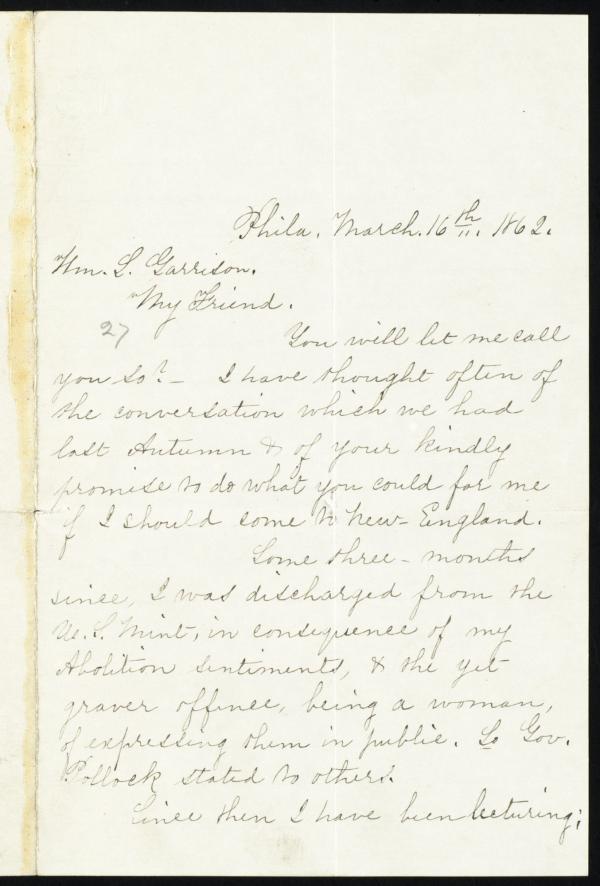 Phila. March. 16th 1862.
Wm. L. Garrison.
My Friend.
27
You will let me call
you so? - I have thought often of
the conversation which we had
last Autumn & of your kindly
promise to do what you could for me
if I should come to New-England.
Some three-months
since, I was discharged from the
U.S. Mint, in consequence of my
Abolition sentiments, & the yet
graver offence, being a woman,
of expressing them in public. So Gov.
Pollock stated to others.
Since then I have been lecturing;